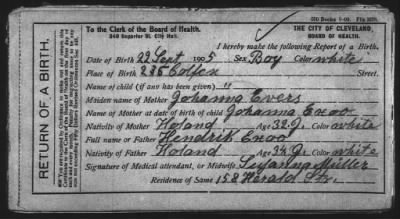 500 Books 9-03.
To the Clerk of the Board of Health.
THE CITY OF CLEVELAND,
340 Superior St. City Hall.
BOARD OF HEALTH.
I hereby make the following Report of a Birth.
Date of Birth 22 Sept 1905 Sex Boy Color white
Place of Birth 235 Colfax Street.
Name of child (if any has been given) "
Maiden name of Mother Johanna Evers
Name of Mother at date of birth of child Johanna Enoo
Nativity of Mother Holand Age 32 J. Color white
Full name of Father Hendrik Enoo
Nativity of Father Holand Age 34 J. Color white
Signature of Medical attendant, or Midwife Müller
Residence of Same 158 Herald Str.
RETURN OF A BIRTH.